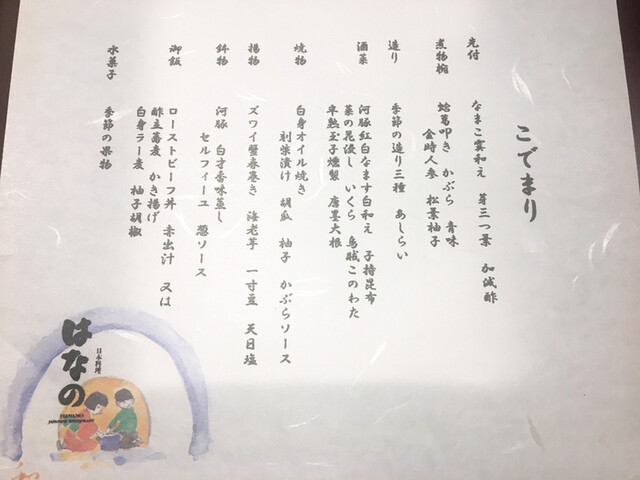 こでまり
先付 なまこ霙和え 芽三つ葉 加減酢
煮物椀 蛤葛叩き かぶら 青味
金時人参 松葉柚子
造り 季節の造り三種 あしらい
酒菜 河豚紅白なます白和え 子持昆布
菜の花浸し いくら 烏賊このわた
半熟玉子燻製 唐墨大根
焼物 白身オイル焼き
割菜漬け 胡瓜 柚子 かぶらソース
揚物 ズワイ蟹春巻き 海老芋 一寸豆 天日塩
鉢物 河豚 白才香味蒸し
セルフィーユ 葱ソース
御飯 ローストビーフ丼 赤出汁 又は
酢立蕎麦 かき揚げ
白身ラー麦 柚子胡椒
水菓子 季節の果物
日本料理
はなの
HANANO
JAPANESE RESTAURANT